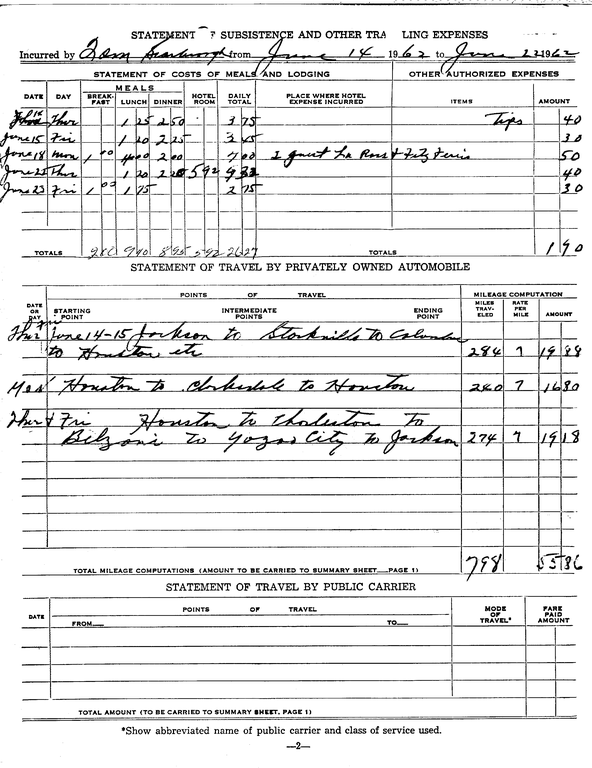 STATEMENT OF SUBSISTENCE AND OTHER TRA LING EXPENSES
Incurred by Tom Scarbrough from June 14 1962 to June 22 1962
STATEMENT OF COSTS OF MEALS AND LODGING OTHER AUTHORIZED EXPENSES
MEALS
DATE DAY BREAK-FAST LUNCH DINNER HOTEL ROOM DAILY TOTAL PLACE WHERE HOTEL EXPENSE INCURRED ITEMS AMOUNT
Thur 1 25 2 50 3 75 Tips 40
June 15 Fri 1 20 2 25 3 45 30
June 18 Mon 1 00 4 00 2 00 7 00 2 guest 50
Thur 1 20 2 20 5 92 9 32 40
Fri 1 00 1 75 2 75 30
TOTALS 2 00 9 40 8 95 5 92 26 27 TOTALS 1 90
STATEMENT OF TRAVEL BY PRIVATELY OWNED AUTOMOBILE
POINTS OF TRAVEL MILEAGE COMPUTATION
DATE OR DAY STARTING POINT INTERMEDIATE POINTS ENDING POINT MILES TRAV-ELED RATE PER MILE AMOUNT
Thur Fri June 14-15 Jackson to Starkville to Columbus
to Houston etc 284 7 19 88
Mon Houston to Clarksdale to Houston 240 7 16 80
Thur & Fri Houston to Charleston to
Belzoni to Yazoo City to Jackson 274 7 19 18
TOTAL MILEAGE COMPUTATIONS (AMOUNT TO BE CARRIED TO SUMMARY SHEET PAGE 1) 798 55 86
STATEMENT OF TRAVEL BY PUBLIC CARRIER
DATE POINTS OF TRAVEL MODE OF TRAVEL* FARE PAID AMOUNT
FROM TO
TOTAL AMOUNT (TO BE CARRIED TO SUMMARY SHEET, PAGE 1)
*Show abbreviated name of public carrier and class of service used.
—2—